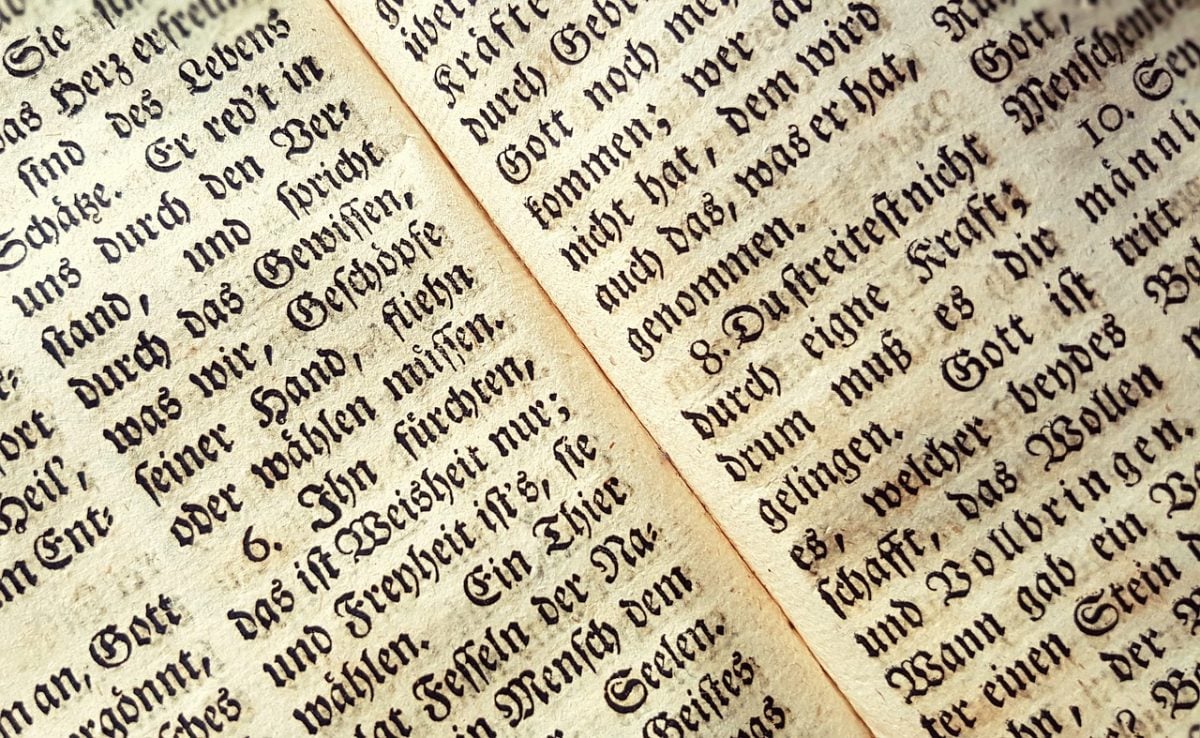 Sie
das Herz erfreun
sind des Lebens
Schätze. Er red't in
uns durch den Ver-
stand, und spricht
durch das Gewissen,
was wir, Geschöpfe
seiner Hand, fliehn
oder wählen müssen.
6. Ihn fürchten,
das ist Weisheit nur;
und Freyheit ist's, sie
wählen. Ein Thier
Fesseln der Na-
Mensch dem
Seelen.
Geistes
Heil,
Ent-
an, Gott
Kräfte
durch
Gott noch
kommen; wer
nicht hat, dem wird
auch das, was er hat,
genommen.
8. Du streitest nicht
durch eigne Kraft;
drum muß es dir
gelingen. Gott ist
es, welcher beydes
schafft, das Wollen
und Vollbringen.
Wann gab ein
ter einen Stein
der
Gott,
10.
tritt